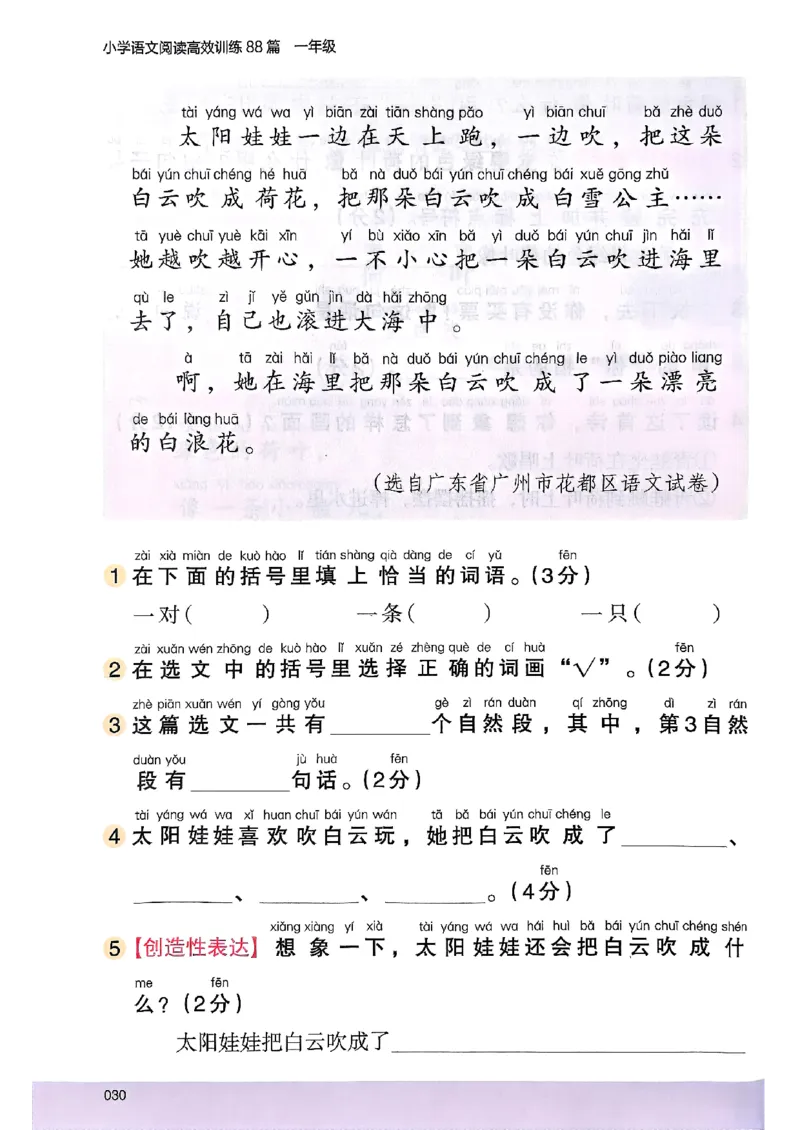 小学语文阅读高效训练88篇 一年级
tài yáng wá wa yì biān zài tiān shàng pǎo yì biān chuī bǎ zhè duǒ
太阳娃娃一边在天上跑，一边吹，把这朵
bái yún chuī chéng hé huā bǎ nà duǒ bái yún chuī chéng bái xuě gōng zhǔ
白云吹成荷花，把那朵白云吹成白雪公主……
tā yuè chuī yuè kāi xīn yí bù xiǎo xīn bǎ yì duǒ bái yún chuī jìn hǎi lǐ
她越吹越开心，一不小心把一朵白云吹进海里
qù le zì jǐ yě gǔn jìn dà hǎi zhōng
去了，自己也滚进大海中。
à tā zài hǎi lǐ bǎ nà duǒ bái yún chuī chéng le yì duǒ piào liang
啊，她在海里把那朵白云吹成了一朵漂亮
de bái làng huā
的白浪花。
（选自广东省广州市花都区语文试卷）
zài xià miàn de kuò hào lǐ tián shàng qià dàng de cí yǔ fēn
1 在下面的括号里填上恰当的词语。（3分）
一对（ ） 一条（ ） 一只（ ）
zài xuǎn wén zhōng de kuò hào lǐ xuǎn zé zhèng què de cí huà fēn
2 在选文中的括号里选择正确的词画“√”。（2分）
zhè piān xuǎn wén yí gòng yǒu gè zì rán duàn qí zhōng dì zì rán
3 这篇选文一共有________个自然段，其中，第3自然
duàn yǒu jù huà fēn
段有________句话。（2分）
tài yáng wá wa xǐ huan chuī bái yún wán tā bǎ bái yún chuī chéng le
4 太阳娃娃喜欢吹白云玩，她把白云吹成了________、
fēn
________、________、________。（4分）
xiǎng xiàng yí xià tài yáng wá wa hái huì bǎ bái yún chuī chéng shén
5【创造性表达】想象一下，太阳娃娃还会把白云吹成什
me fēn
么？（2分）
太阳娃娃把白云吹成了________________
030